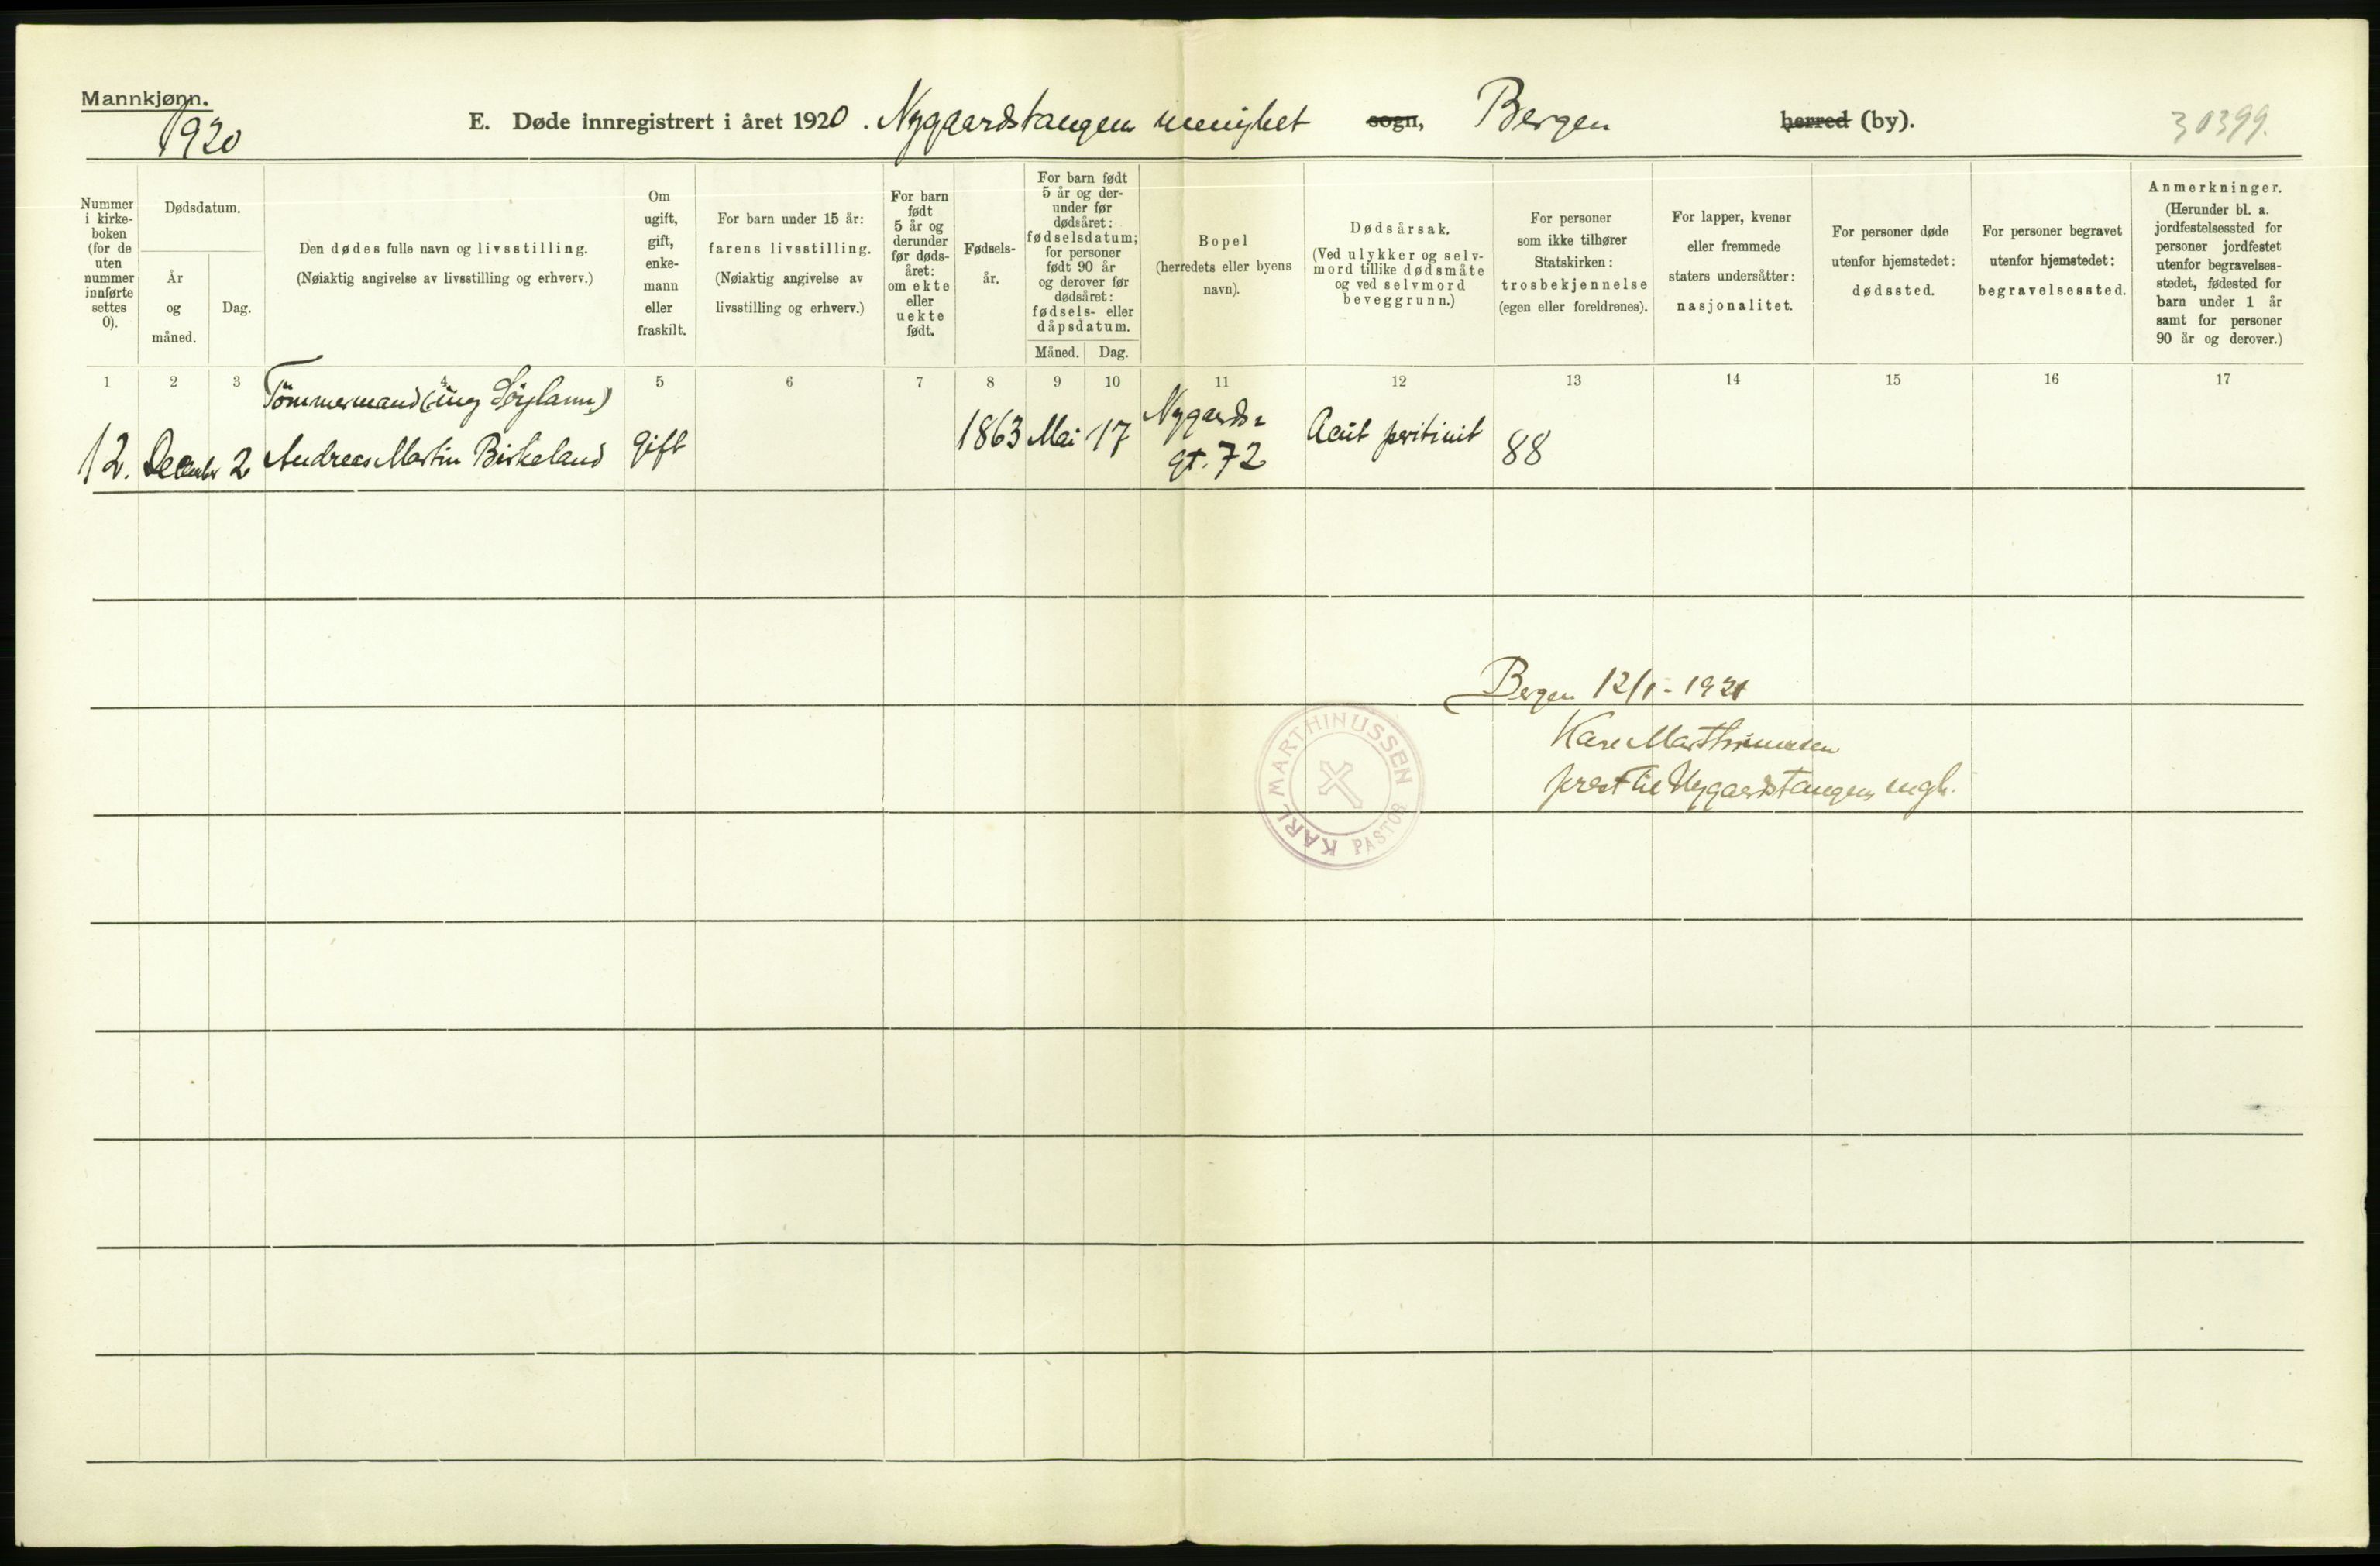 Mannkjønn.
1920
E. Døde innregistrert i året 1920. Nygaardstangens menighet sogn, Bergen herred (by).
30399.
Nummer i kirke- boken (for de uten nummer innførte settes 0).
Dødsdatum.
År og måned.
Dag.
Den dødes fulle navn og livsstilling.
(Nøiaktig angivelse av livsstilling og erhverv.)
Om ugift, gift, enke- mann eller fraskilt.
For barn under 15 år:
farens livsstilling.
(Nøiaktig angivelse av livsstilling og erhverv.)
For barn født 5 år og derunder før døds- året: om ekte eller uekte født.
Fødsels- år.
For barn født 5 år og der- under før dødsåret: fødselsdatum; for personer født 90 år og derover før dødsåret: fødsels- eller dåpsdatum.
Måned.
Dag.
Bopel
(herredets eller byens navn).
Dødsårsak.
(Ved ulykker og selv- mord tillike dødsmåte og ved selvmord beveggrunn.)
For personer som ikke tilhører Statskirken: trosbekjennelse (egen eller foreldrenes).
For lapper, kvener eller fremmede staters undersåtter: nasjonalitet.
For personer døde utenfor hjemstedet: dødssted.
For personer begravet utenfor hjemstedet: begravelsessted.
Anmerkninger.
(Herunder bl. a. jordfestelsessted for personer jordfestet utenfor begravelses- stedet, fødested for barn under 1 år samt for personer 90 år og derover.)
1 2 3 4 5 6 7 8 9 10 11 12 13 14 15 16 17
Tömmermand
12. December 2 Andreas Martin Birkeland gift 1863 Mai 17 Nygaards= gt. 72 Acut peritinit 88
Bergen 12/1 - 1921
Karl Marthinussen
prest til Nygaardstangens mgh.
KARL MARTHINUSSEN
PASTOR